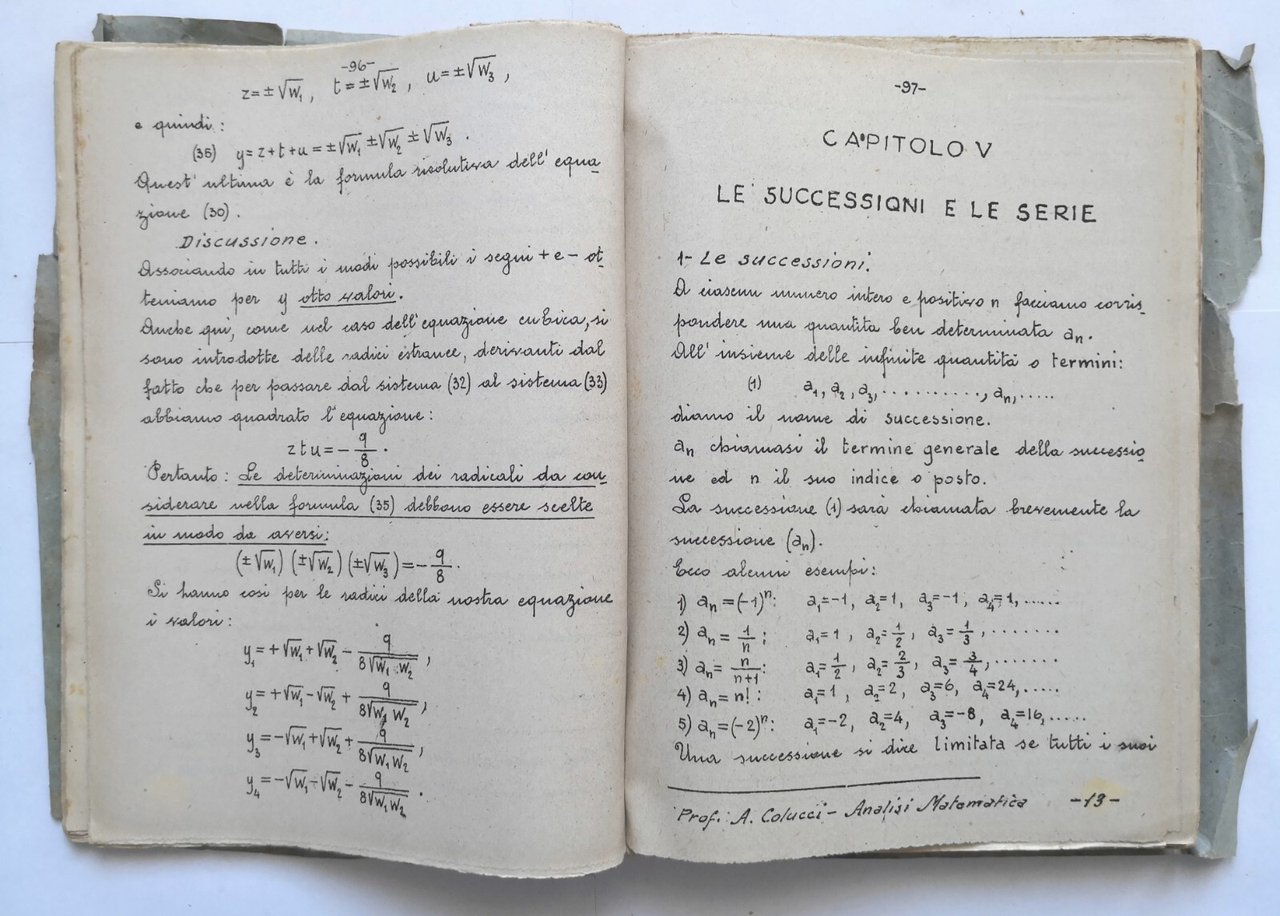 -96-
z=±√w₁, t=±√w₂, u=±√w₃,
e quindi:
(35) y=z+t+u=±√w₁±√w₂±√w₃.
Quest'ultima è la formula risolutiva dell'equa-
zione (30).
Discussione.
Associando in tutti i modi possibili i segni + e - ot-
teniamo per y otto valori.
Anche qui, come nel caso dell'equazione cubica, si
sono introdotte delle radici estranee, derivanti dal
fatto che per passare dal sistema (32) al sistema (33)
abbiamo quadrato l'equazione:
z t u = - q/8.
Pertanto: Le determinazioni dei radicali da con-
siderare nella formula (35) debbono essere scelte
in modo da aversi:
(±√w₁) (±√w₂) (±√w₃) = - q/8.
Si hanno così per le radici della nostra equazione
i valori:
y₁ = +√w₁+√w₂ - q/8√w₁w₂,
y₂ = +√w₁-√w₂ + q/8√w₁w₂,
y₃ = -√w₁+√w₂ + q/8√w₁w₂,
y₄ = -√w₁-√w₂ - q/8√w₁w₂.
-97-
CAPITOLO V
LE SUCCESSIONI E LE SERIE
1- Le successioni.
A ciascun numero intero e positivo n facciamo corris-
pondere una quantità ben determinata aₙ.
All'insieme delle infinite quantità o termini:
(1) a₁, a₂, a₃, .........., aₙ, .....
diamo il nome di successione.
aₙ chiamasi il termine generale della successio-
ne ed n il suo indice o posto.
La successione (1) sarà chiamata brevemente la
successione (aₙ).
Ecco alcuni esempi:
1) aₙ=(-1)ⁿ: a₁=-1, a₂=1, a₃=-1, a₄=1, .....
2) aₙ= 1/n: a₁=1, a₂=1/2, a₃=1/3, .......
3) aₙ= n/n+1: a₁=1/2, a₂=2/3, a₃=3/4, .......
4) aₙ=n!: a₁=1, a₂=2, a₃=6, a₄=24, .....
5) aₙ=(-2)ⁿ: a₁=-2, a₂=4, a₃=-8, a₄=16, .....
Una successione si dice limitata se tutti i suoi
Prof. A. Colucci - Analisi Matematica -13-